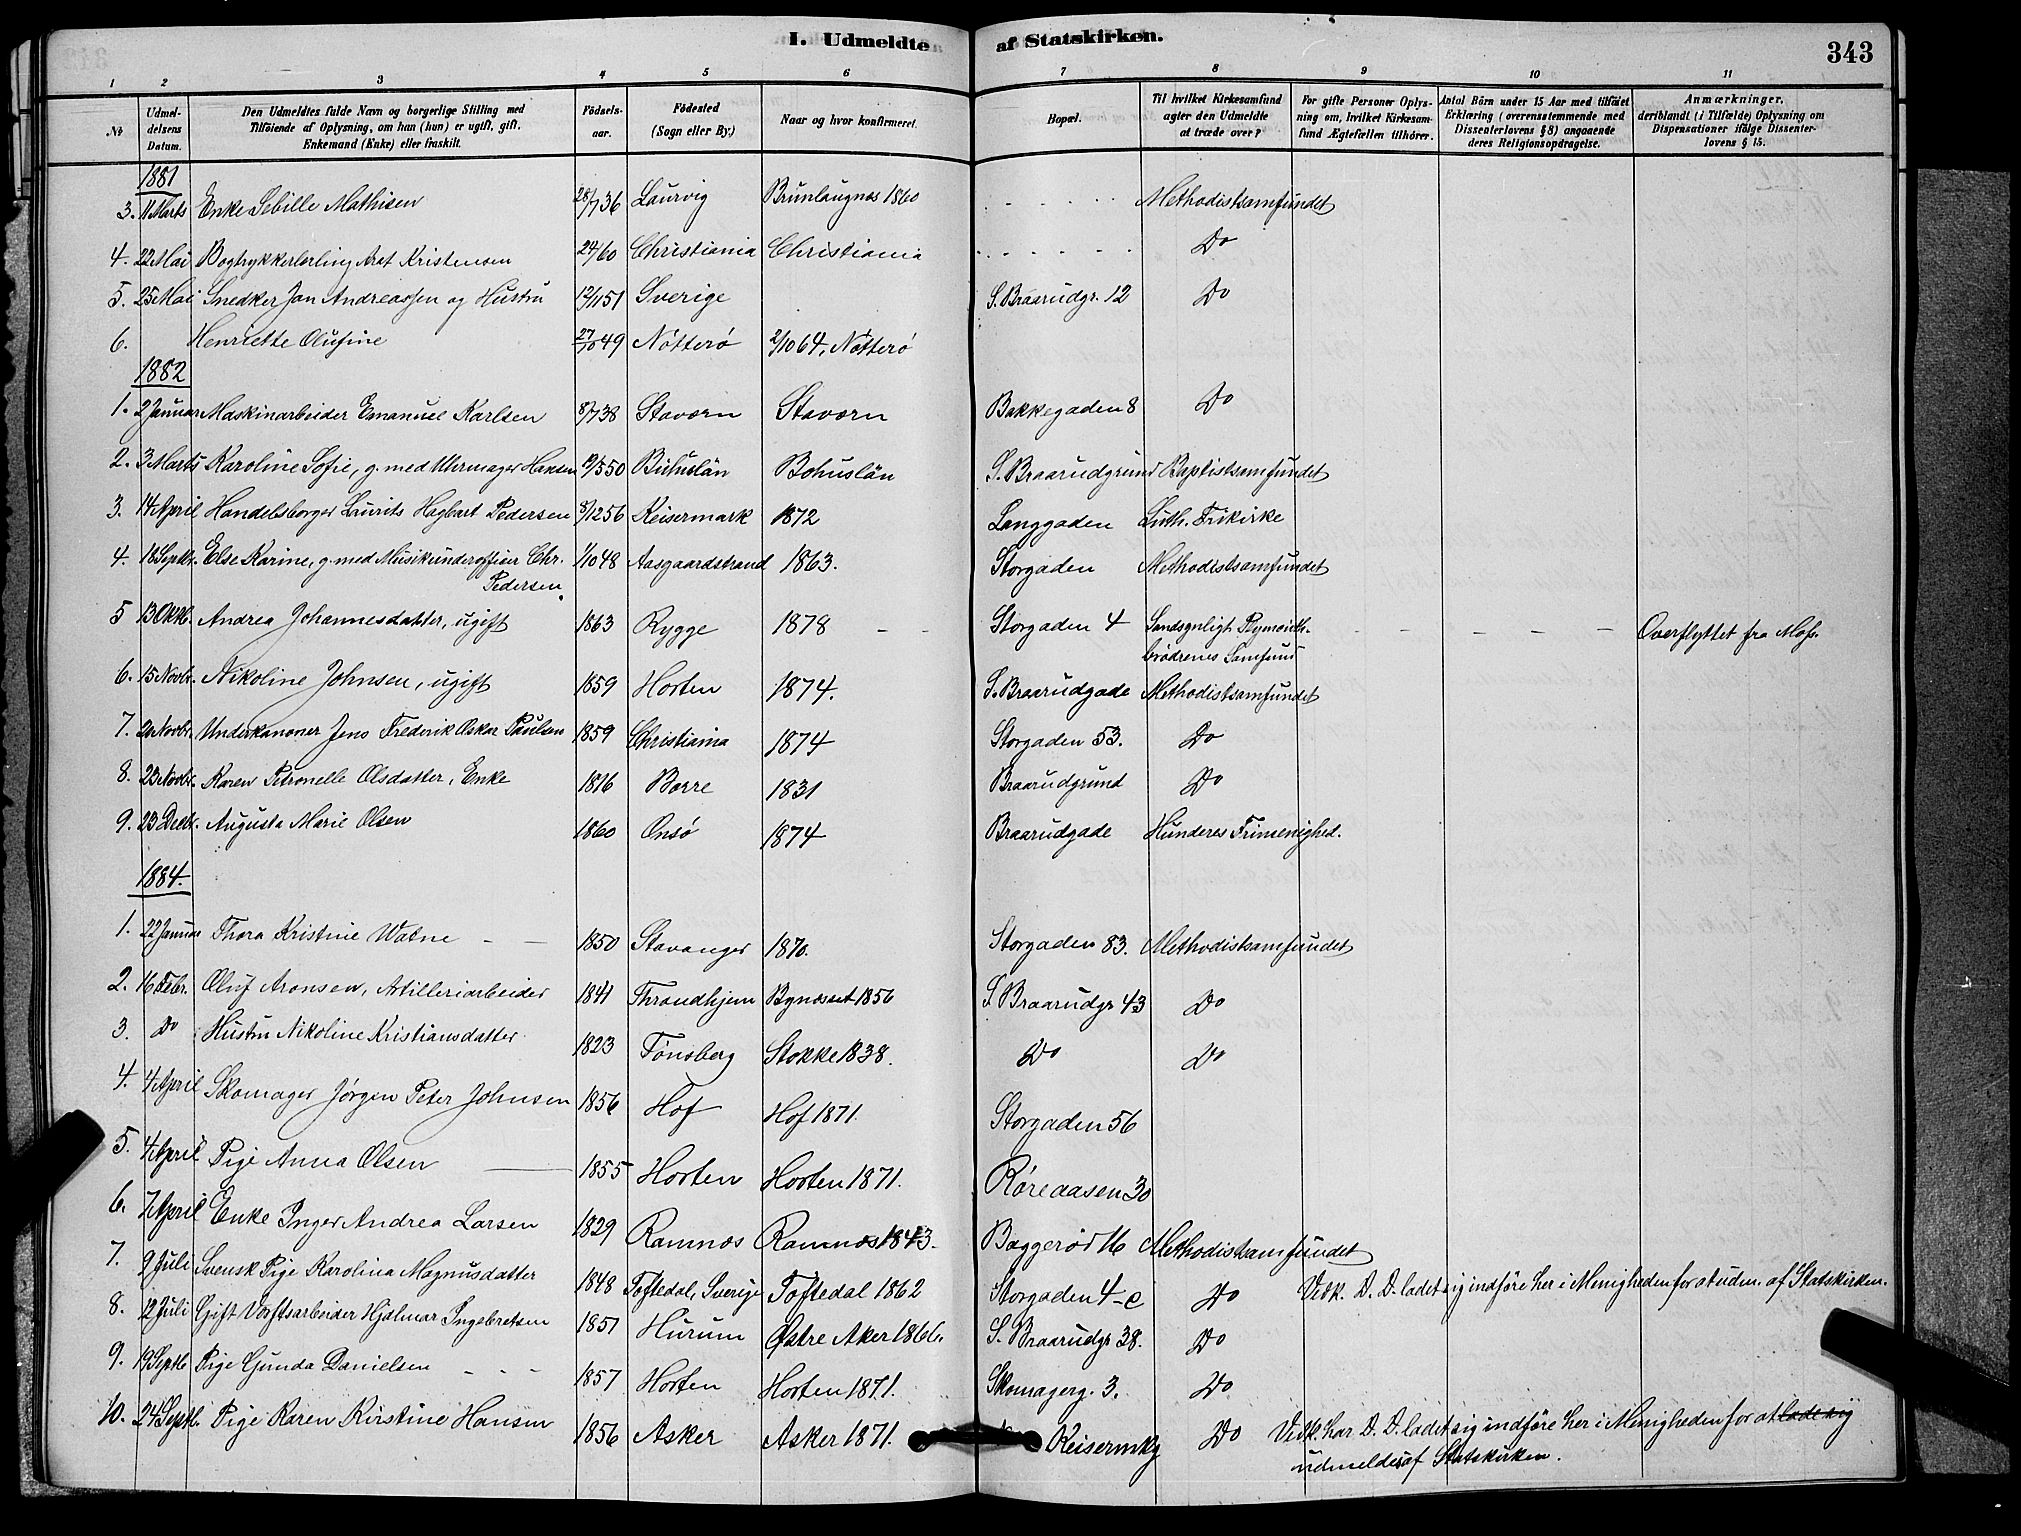 I. Udmeldte af Statskirken. 343
1 2 3 4 5 6 7 8 9 10 11
No | Udmeldelsens Datum. | Den Udmeldtes fulde Navn og borgerlige Stilling med Tilføiende af Oplysning, om han (hun) er ugift, gift, Enkemand (Enke) eller fraskilt. | Fødselsaar. | Fødested (Sogn eller By.) | Naar og hvor konfirmeret. | Bopæl. | Til hvilket Kirkesamfund agter den Udmeldte at træde over? | For gifte Personer Oplysning om, hvilket Kirkesamfund Ægtefællen tilhører. | Antal Børn under 15 Aar med tilføiet Erklæring (overensstemmende med Dissenterlovens § 8) angaaende deres Religionsopdragelse. | Anmærkninger, deriblandt (i Tilfælde) Oplysning om Dispensationer ifølge Dissenterlovens § 15.
1881
3. 11 Marts Enke Sebille Mathisen 28/7 36 Laurvig Brunlaugnæs 1860 - - - - - Methodistsamfundet
4. 22 Mai Bogtrykkerlærling Kristensen 24/ 60 Christiania Christiania - - - - - Do
5. 25 Mai Snedker Jan Andreassen og Hustru 12/11 51 Sverige S. Braarudgr. 12 Do
6. Henriette Olufine 27/10 49 Nøtterø 2/10 64, Nøtterø
1882
1. 2 Januar Maskinarbeider Emanuel Karlsen 8/7 38 Staværn Staværn Bakkegaden 8 Do
2. 3 Marts Karoline Sofie, g. med Uhrmager Hansen /5 50 Buhuslän Bohuslän S. Braarudgrund Baptistsamfundet
3. 14 April Handelsborger Laurits Hagbart Pedersen 8/12 56 Keisermark 1872 Langgaden Luth. Frikirke
4. 18 Septbr. Else Karine, g. med Musikunderofficier Chr. Pedersen. 1/10 48 Aasgaardstrand 1863. Storgaden Methodistsamfundet
5 13 Oktb. Andrea Johannesdatter, ugift 1863 Rygge 1878 - - Storgaden 4 Sandsynligt Plymouthbrødrenes Samfund - - - - - Overflyttet fra Moss.
6. 15 Novbr. Nikoline Johnsen, ugift 1859 Horten 1874. S. Braarudgade Methodistsamfundet
7. 20 Novbr. Underkanoner Jens Frederik Oskar Paulsen 1859 Christiania 1874 Storgaden 53. Do
8. 23 Novbr. Karen Petronelle Olsdatter, Enke 1816 Borre 1831 Braarudgrund Do
9. 23 Decbr. Augusta Marie Olsen 1860 Onsø 1874 Braarudgade Hunderes Frimenighed.
1884.
1. 22 Januar Thora Kristine Watne - - 1850 Stavanger 1870. Storgaden 83. Methodistsamfundet
2. 16 Febr. Oluf Aronsen, Artilleriarbeider 1841 Throndhjem Bynæsset 1856 S. Braarudgr 43 Do
3. Do Hustru Nikoline Kristiansdatter 1823 Tønsberg Stokke 1838. Do Do
4. 4 April Skomager Jørgen Peter Johnsen 1856 Hof Hof 1871. Storgaden 56
5. 4 April Pige Anna Olsen 1855 Horten Horten 1871. Røreaasen 30
6. 7 April Enke Inger Andrea Larsen 1829 Ramnæs Ramnæs 1843. Baggerød 16 Methodistsamfundet
7. 9 Juli Svensk Pige Karolina Magnusdatter 1848 Töftedal, Sverige Töftedal 1862 Storgaden 4-c Do Vedk. D. D. ladet sig indføre her i Menigheden for at udm. af Statskirken.
8. 12 Juli Gift Værftsarbeider Hjalmar Ingebretsen 1851 Hurum Østre Aker 1866. S. Braarudgr. 38. Do
9. 19 Septb. Pige Gunda Danielsen - - - 1857 Horten Horten 1871. Skomagerg. 3. Do
10. 24 Septb. Pige Karen Kirstine Hansen 1856 Asker Asker 1871. Keisermkg Do Vedk. har D. D. ladet sig indføre her i Menigheden for at lade sig
udmeldes af Statskirken.